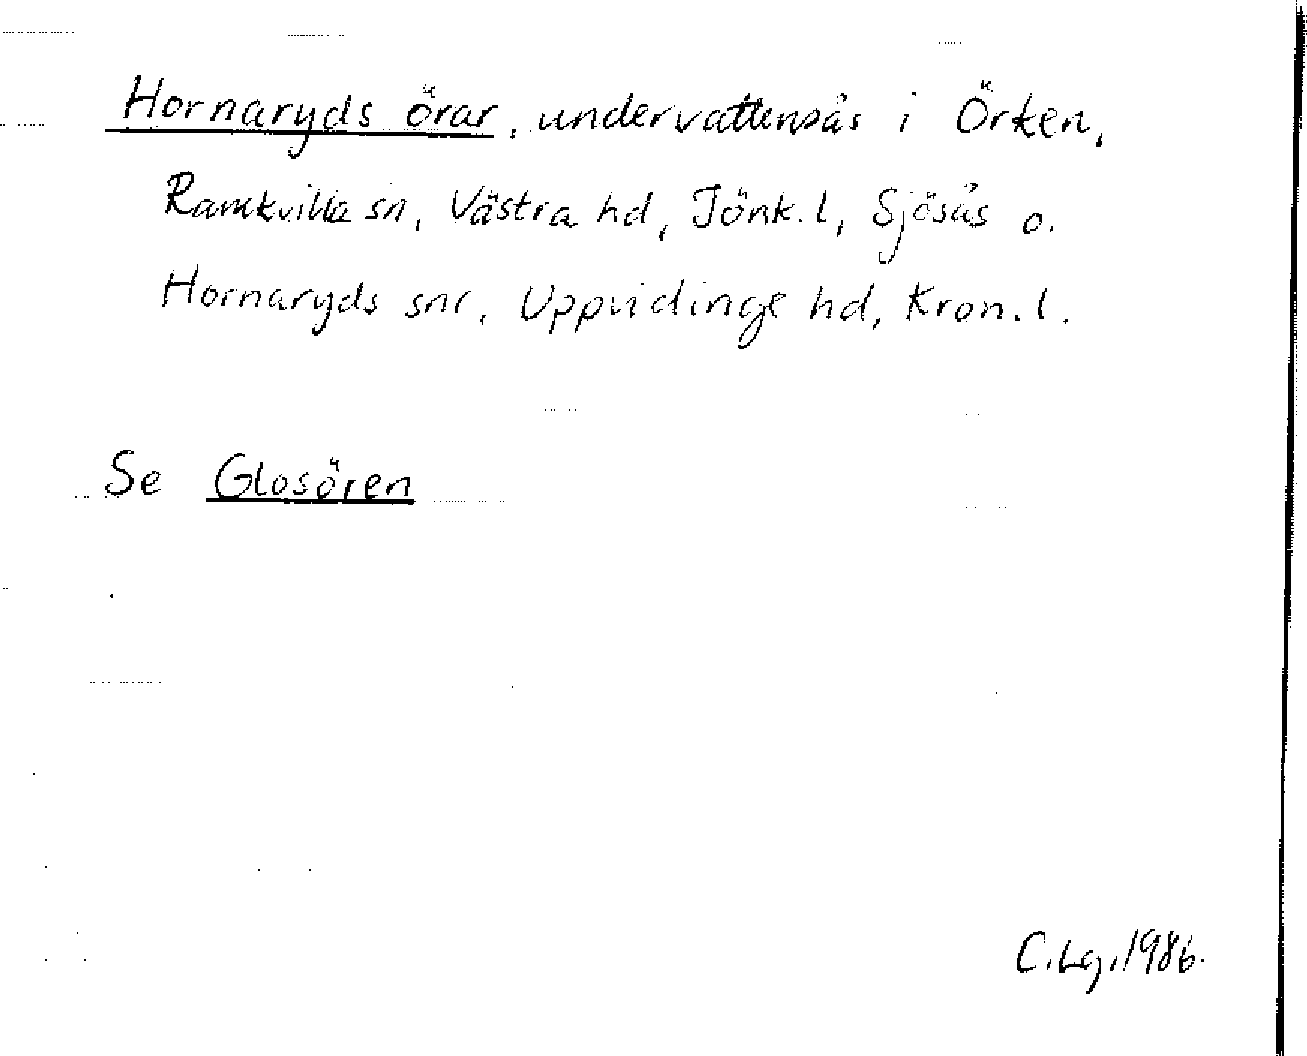 Hornaryds örar, undervattensås i Örken,
Ramkvilla sn, Västra hd, Jönk. l, Sjösås o.
Hornaryds snr, Uppvidinge hd, Kron. l.
Se Glosören
C. Lg. 1986.